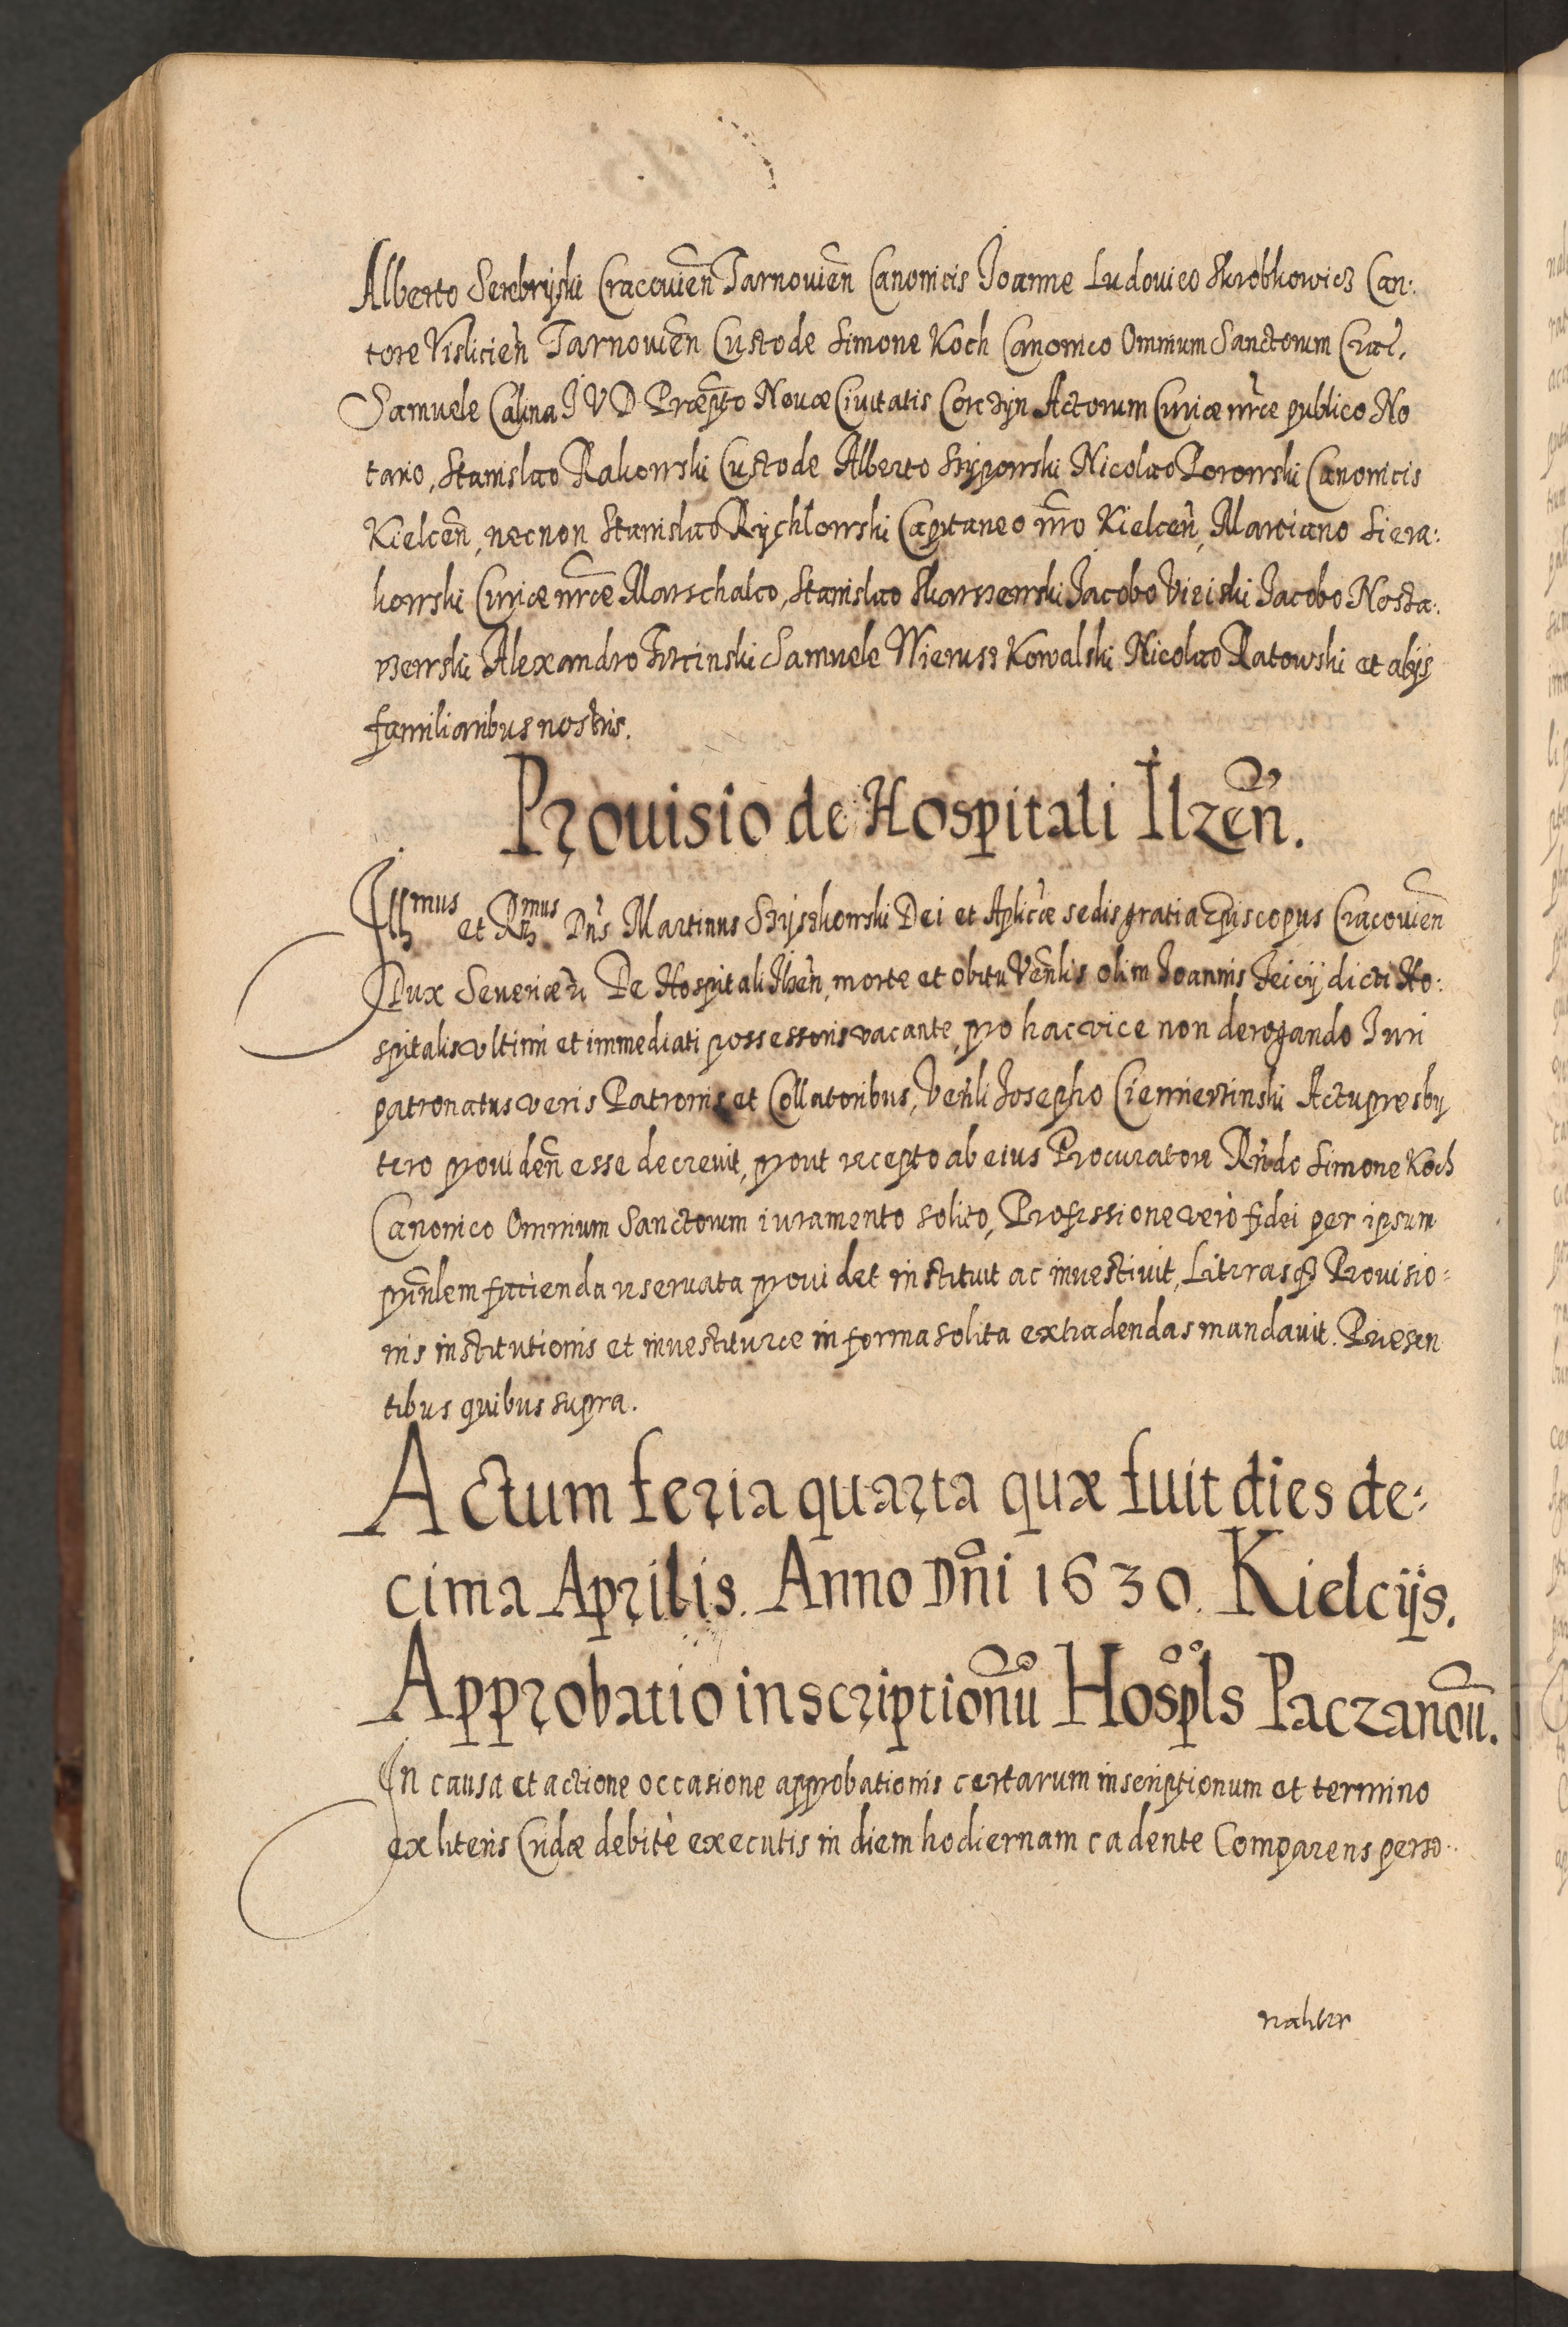 Alberto Serebryski Cracovien̄ Tarnovien̄ Canonicis Joanne Ludovico Skrobkowicz Can:
tore Vislicien̄ Tarnovien̄ Custode Simone Koch Canonico Omnium Sanctorum Crac̄.
Samuele Calina J V D Præpto Novæ Civitatis Corczyn Actorum Curiæ nræ publico No
tario, Stanislao Rakowski Custode Alberto Nicolao Borowski Canonicis
Kielcen̄, necnon Stanislao Rychłowski Capitaneo nro Kielcen̄, Martiano Siera:
kowski Curiæ nræ Marschalco, Stanislao Skarszewski Jacobo Jacobo
Alexandro Samuele Wierusz Kowalski Nicolao Ratowski et alijs
familiaribus nostris.
Provisio de Hospitali Ilzen̄.
Illmus et Rndmus Dn̄s Martinus Szyszkowski Dei et Aplicæ sedis gratia Episcopus Cracovien̄
Dux Severiæ &. De Hospitali Ilzen̄, morte et obitu Ven̄lis olim Joannis dicti Ho:
spitalis ultimi et immediati possessoris vacante, pro hac vice non derogando Juri
patronatus veris Patronis et Collatoribus, Ven̄li Josepho Actu presby
tero providen̄ esse decrevit, prout recepto ab eius Procuratore Rn̄do Simone Koch
Canonico Omnium Sanctorum iuramento solito, Professione verò fidei per ipsum
prin̄lem facienda reservata providet instituit ac investivit, Literasq3 Provisio:
nis institutionis et investituræ in forma solita extradendas mandavit. Præsen
tibus quibus supra.
Actum feria quarta quæ fuit dies de:
cima Aprilis. Anno Dn̄i 1630. Kielcijs.
Approbatio inscriptionū Hospls Paczanoū.
In causa et actione occasione approbationis certarum inscriptionum et termino
ex literis Cridæ debitè executis in diem hodiernam cadente Comparens perso
naliter